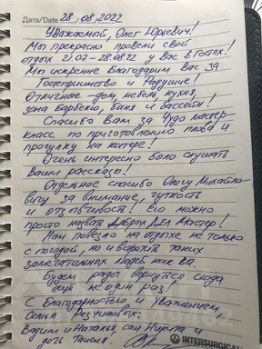 Дата/Date 28.08.2022
Уважаемый, Олег Юрьевич!
Мы прекрасно провели свой
отдых 21.07-28.08.22 у Вас в Гостях!
Мы искренне Благодарим Вас за
Гостеприимство и Радушие!
Отличные дом, мебель, кухня,
зона Барбекю, Баня и Бассейн!
Спасибо Вам за Чудо мастер-
класс по приготовлению плова и
прогулку на катере!
Очень интересно было слушать
Ваши рассказы!
Отдельное спасибо Олегу Михайло-
вичу за внимание, чуткость
и отзывчивость! Его можно
просто назвать Добрых Дел Мастер!
Нам повезло на отдыхе не только
с погодой, но и встретить таких
замечательных людей как Вы.
Будем рады вернуться сюда
ещё не один раз!
С Благодарностью и Уважением,
Семья
Вадим и Наталья, сын Никита и
дочь Таисия.
INTERSURGICAL